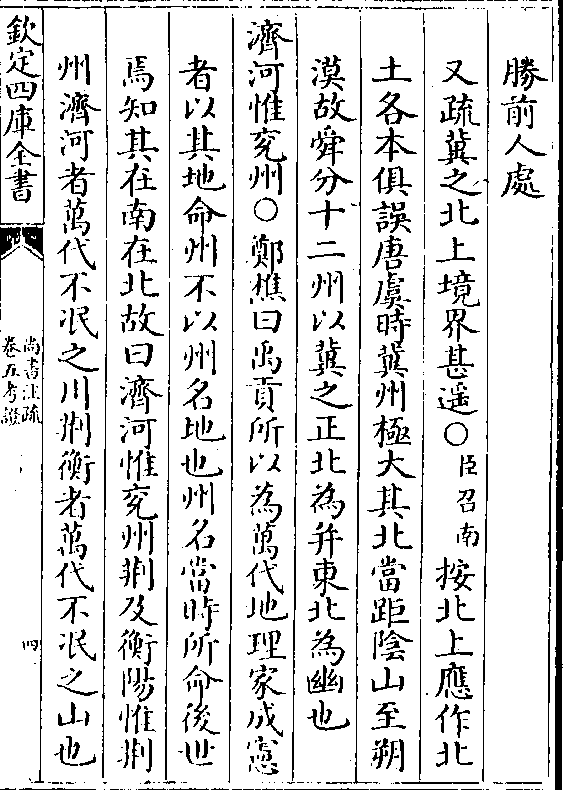 勝前人處
又疏冀之北上境界甚遥〇臣召南按北上應作北
土各本俱誤唐虞時冀州極大其北當距陰山至朔
漠故舜分十二州以冀之正北為并東北為幽也
濟河惟兖州〇鄭樵曰禹貢所以為萬代地理家成憲
者以其地命州不以州名地也州名當時所命後世
焉知其在南在北故曰濟河惟兖州荆及衡陽惟荆
州濟河者萬代不泯之川荆衡者萬代不泯之山也
欽定四庫全書
尚書注疏
卷五考證
四